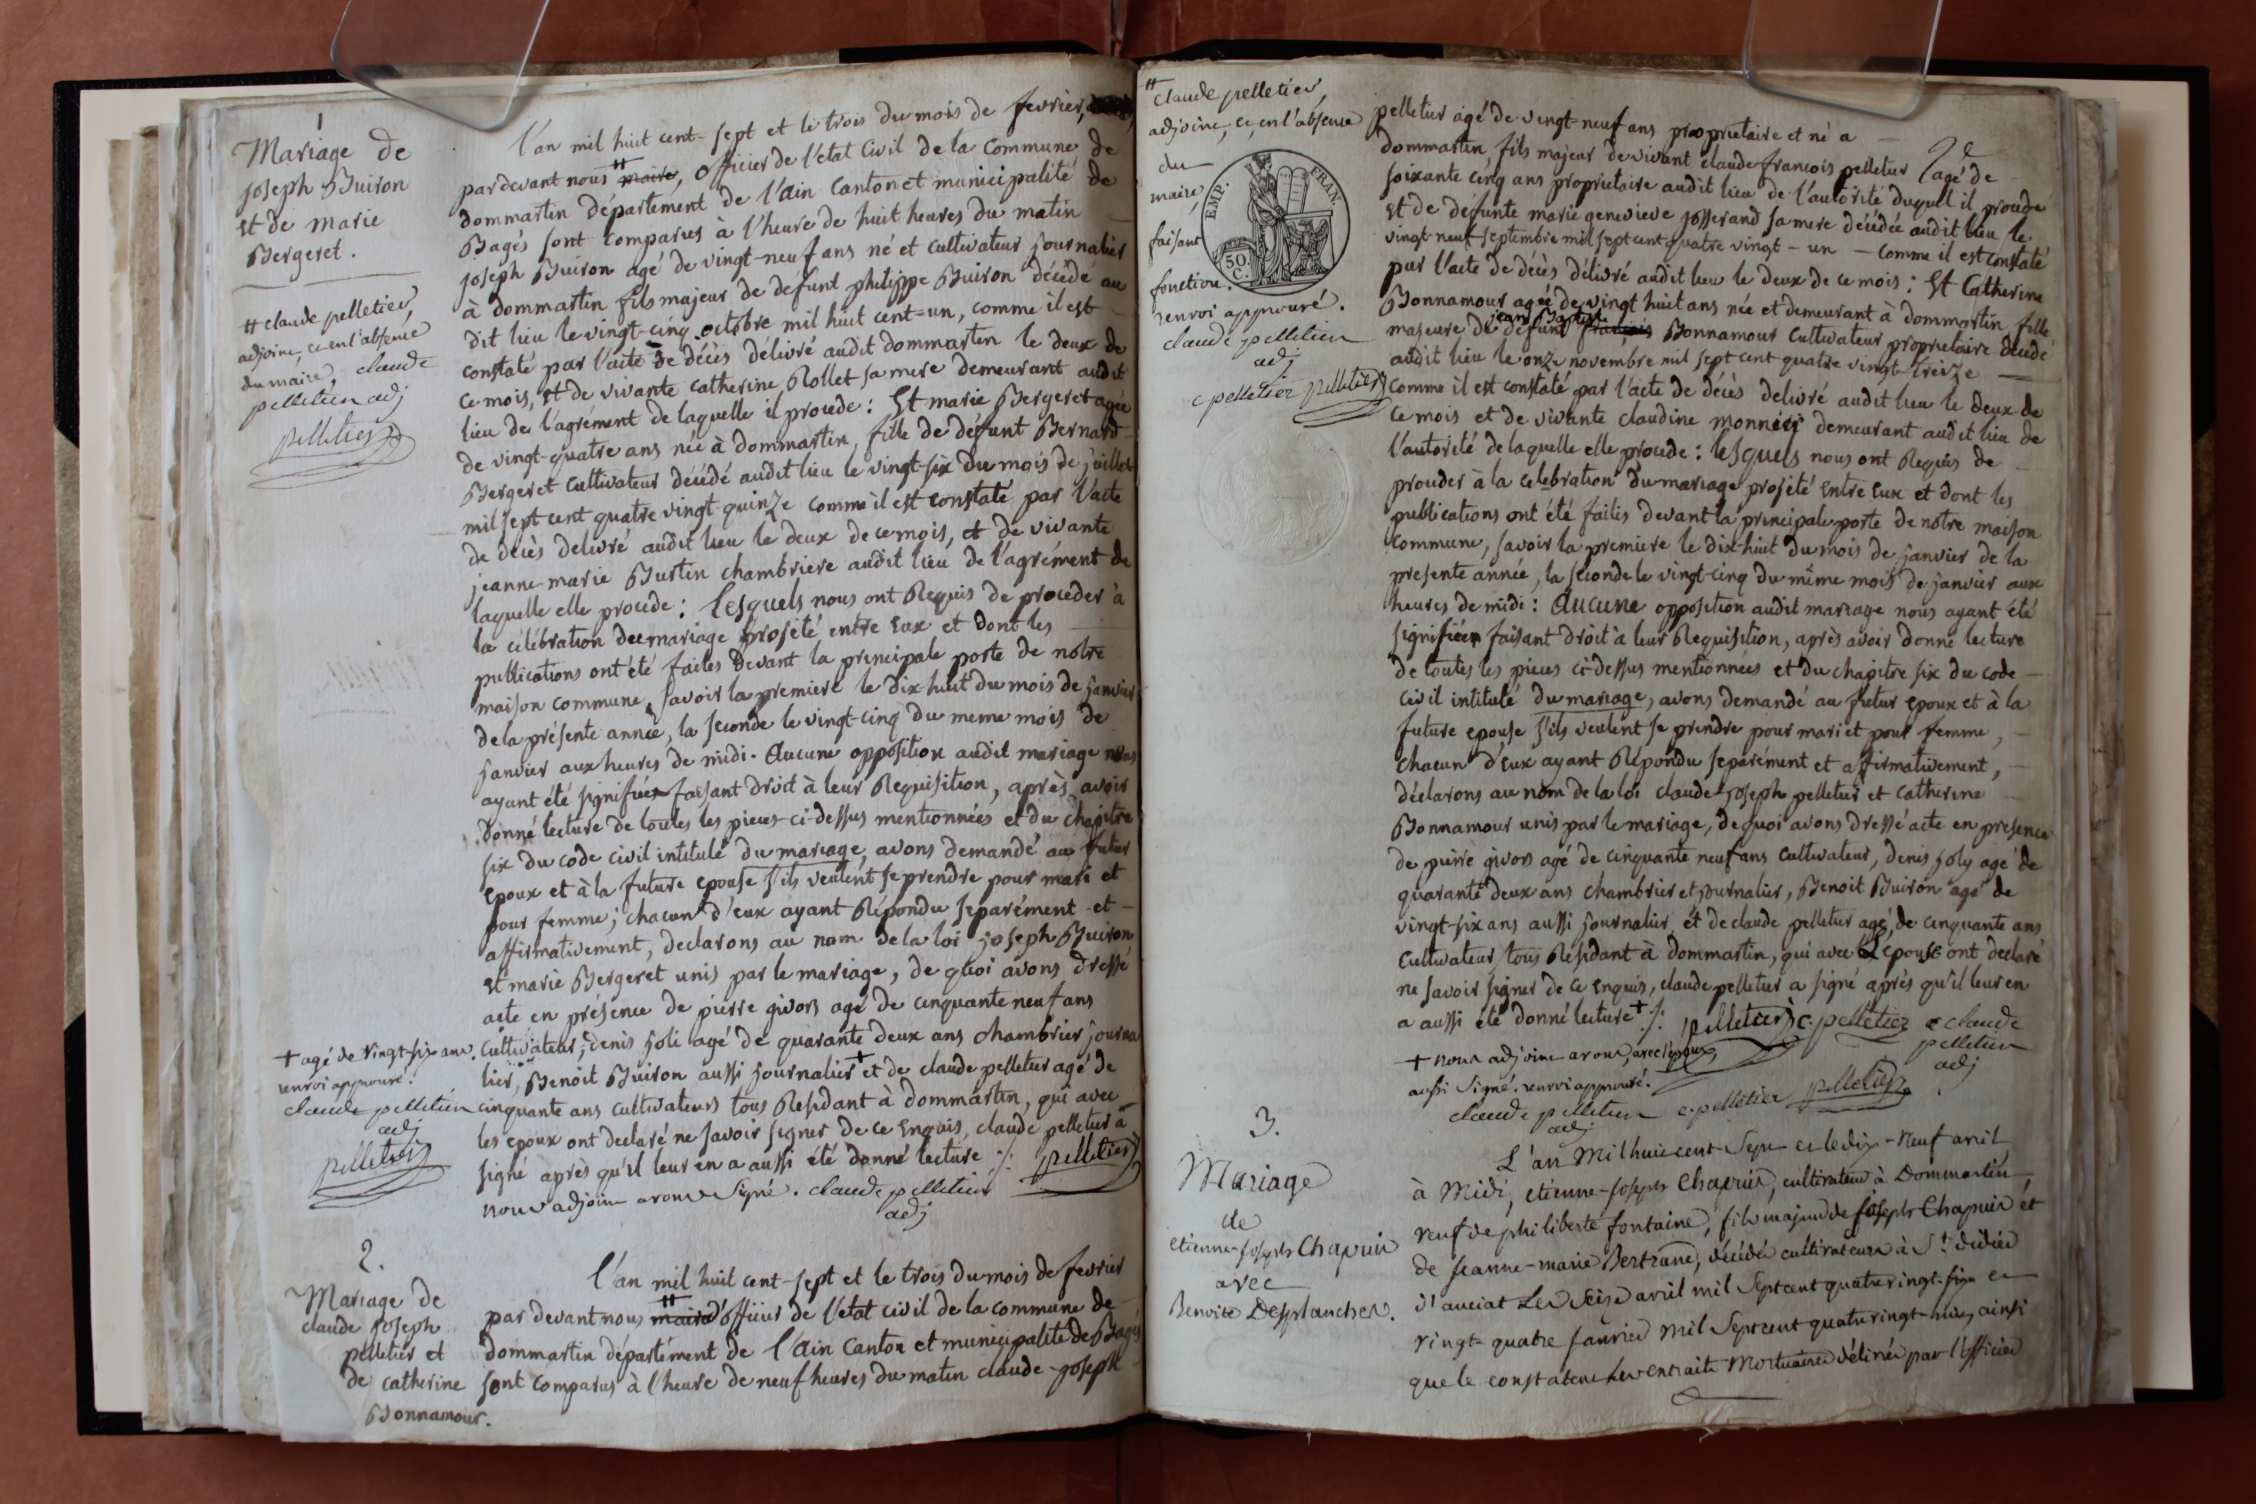 1
Mariage de
joseph Buiron
et de marie
Bergeret.
# claude pelletier,
adjoint, ce en l'absence
du maire, claude
pelletier adj
pelletier
l'an mil huit cent-sept et le trois du mois de fevrier,
pardevant nous # maire, officier de l'etat Civil de la Commune de
dommartin département de l'ain Canton et municipalité de
Bagés sont comparus à l'heure de huit heures du matin
joseph Buiron agé de vingt-neuf ans né et cultivateur journalier
à dommartin fils majeur de défunt philippe Buiron décédé au
dit lieu le vingt-cinq octobre mil huit cent-un, comme il est
constaté par l'acte de décès délivré audit dommartin le deux de
ce mois, et de vivante catherine Rollet sa mere demeurant audit
lieu de l'agrément de laquelle il procede : Et marie Bergeret agée
de vingt-quatre ans née à dommartin, fille de défunt Bernard
Bergeret cultivateur décédé audit lieu le vingt-six du mois de juillet
mil sept cent quatre vingt quinze comme il est constaté par l'acte
de décès delivré audit lieu le deux de ce mois, et de vivante
jeanne-marie Burtin chambriere audit lieu de l'agrément de
laquelle elle procede : lesquels nous ont Requis de proceder à
la célébration du mariage projété entre Eux et dont les
publications ont été faites devant la principale porte de notre
maison commune, savoir la premiere le dix huit du mois de janvier
de la présente année, la seconde le vingt-cinq du meme mois de
janvier aux heures de midi. Aucune opposition audit mariage nous
ayant été signifiée faisant droit à leur Requisition, après avoir
donné lecture de toutes les pieces ci-dessus mentionnées et du chapitre
six du code civil intitulé du mariage, avons demandé au futur
epoux et à la future epouse s'ils veulent se prendre pour mari et
pour femme ; chacun d'eux ayant Répondu separément et
affirmativement, declarons au nom de la loi joseph Buiron
et marie Bergeret unis par le mariage, de quoi avons dressé
acte en présence de pierre givors agé de cinquante neuf ans
Cultivateur, denis joli agé de quarante deux ans chambrier journa
lier, Benoit Buiron aussi journalier + et de claude pelletier agé de
cinquante ans cultivateurs tous Résidant à dommartin, qui avec
les epoux ont declaré ne savoir signer de ce enquis, claude pelletier a
signé après qu'il leur en a aussi été donné lecture ./. pelletier
nous adjoint avons signé. claude pelletier
adj
+ agé de vingt-six ans.
renvoi approuvé.
claude pelletier
adj
pelletier
2.
Mariage de
claude joseph
pelletier et
de catherine
Bonnamour.
l'an mil huit cent-sept et le trois du mois de fevrier
par devant nous # maire d'officier de l'etat civil de la commune de
dommartin département de l'ain Canton et municipalité de Bagé
sont comparus à l'heure de neuf heures du matin claude-joseph
# claude pelletier,
adjoint, ce en l'absence
du
maire,
faisant
fonction.
renvoi approuvé.
claude pelletier
adj
c pelletier pelletier
EMP. FRAN.
50
C.
pelletier agé de vingt-neuf ans proprietaire et né a
dommartin, fils majeur de vivant claude francois pelletier agé de
soixante cinq ans proprietaire audit lieu de l'autorité duquel il procede
et de defunte marie genevieve josserand sa mere décédée audit lieu le
vingt neuf septembre mil sept cent quatre vingt - un - comme il est constaté
par l'acte de décès délivré audit lieu le deux de ce mois : Et Catherine
Bonnamour agée de vingt huit ans née et demeurant à dommartin fille
jean Baptiste
majeure de défunt francois Bonnamour Cultivateur proprietaire décédé
audit lieu le onze novembre mil sept cent quatre vingt-treize
comme il est constaté par l'acte de décès delivré audit lieu le deux de
ce mois et de vivante claudine monnier demeurant audit lieu de
l'autorité de laquelle elle procede : lesquels nous ont Requis de
proceder à la celebration du mariage projété entre Eux et dont les
publications ont été faites devant la principale porte de notre maison
commune, savoir la premiere le dix-huit du mois de janvier de la
presente année, la seconde le vingt-cinq du même mois de janvier aux
heures de midi : Aucune opposition audit mariage nous ayant été
signifiée faisant droit à leur Requisition, après avoir donné lecture
de toutes les pieces ci-dessus mentionnées et du chapitre six du code
civil intitulé du mariage, avons demandé au futur epoux et à la
future epouse s'ils veulent se prendre pour mari et pour femme,
chacun d'eux ayant Répondu separément et affirmativement,
déclarons au nom de la loi claude-joseph pelletier et catherine
Bonnamour unis par le mariage, de quoi avons dressé acte en presence
de pierre givors agé de cinquante neuf ans cultivateur, denis joly agé de
quarante deux ans chambrier et journalier, Benoit Buiron agé de
vingt-six ans aussi journalier, et de claude pelletier agé de cinquante ans
Cultivateur, tous Résidant à dommartin, qui avec L'epouse ont declaré
ne savoir signer de ce enquis, claude pelletier a signé après qu'il leur en
a aussi été donné lecture + ./. pelletier c. pelletier claude
pelletier
adj
+ nous adjoint avons, avec l'epoux,
aussi signé. renvoi approuvé.
claude pelletier c. pelletier pelletier
adj
3.
Mariage
de
etienne-joseph Chapuis
avec
Benoite Desplanches.
L'an Mil huit cent Sept et le dix-neuf avril
à Midi, etienne-joseph Chapuis, cultivateur à Dommartin,
veuf de philiberte fontaine, fils majeur de joseph Chapuis et
de jeanne-marie Bertrand, décédés cultivateurs à St didier
d'auciat Les Seize avril mil Sept cent quatre vingt-six et
vingt-quatre janvier mil Sept cent quatre vingt-huit, ainsi
que le constatent Les extraits Mortuaires délivrés par l'officier